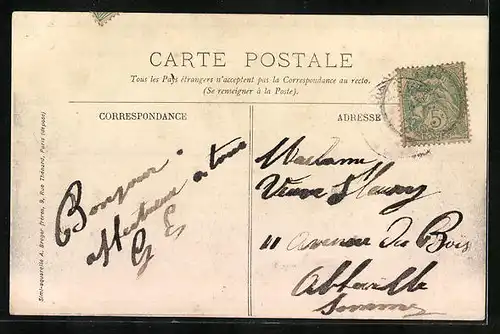 CARTE POSTALE
Tous les Pays étrangers n'acceptent pas la Correspondance au recto.
(Se renseigner à la Poste).
CORRESPONDANCE
ADRESSE
Bonjour
affectueux a tous
G E
Madame
Veuve Fleury
11 avenue du Bois
Abbeville
Somme
5c
Simi-aquarelle A. Breger frères, 9, Rue Thénard, Paris (déposé)